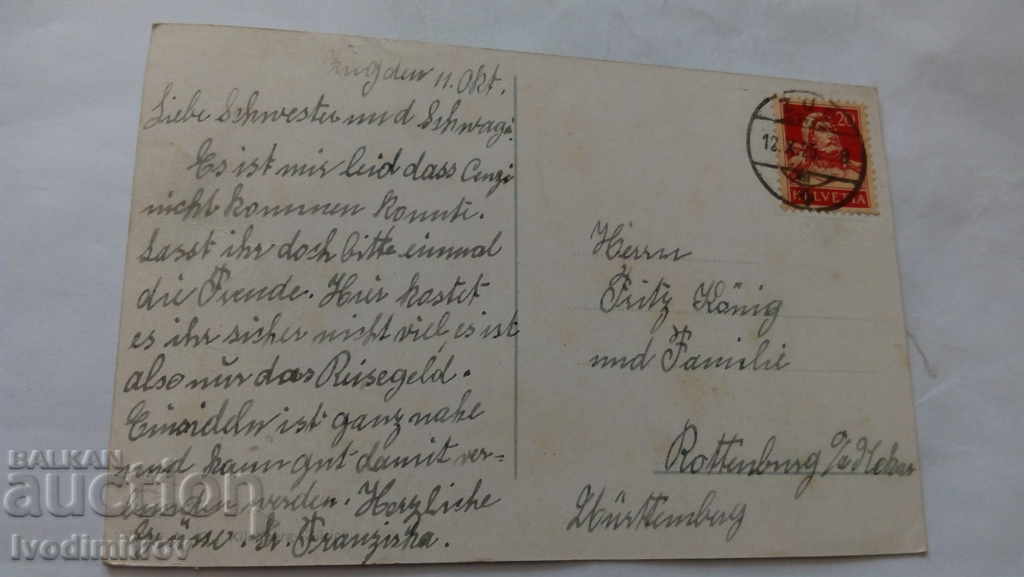 Zug den 11. Okt.
Liebe Schwester und Schwager!
Es ist mir leid dass Cenzi
nicht kommen konnte.
Lasst ihr doch bitte einmal
die Freude. Hier kostet
es ihr sicher nicht viel, es ist
also nur das Reisegeld.
Einsideln ist ganz nahe
und kann gut damit ver-
bunden werden. Herzliche
Grüsse. Sr. Franziska.
20
HELVETIA
12. X.
Herrn
Fritz König
und Familie
Rottenburg
Württemberg
BALKAN
auction
Ivodimitrov